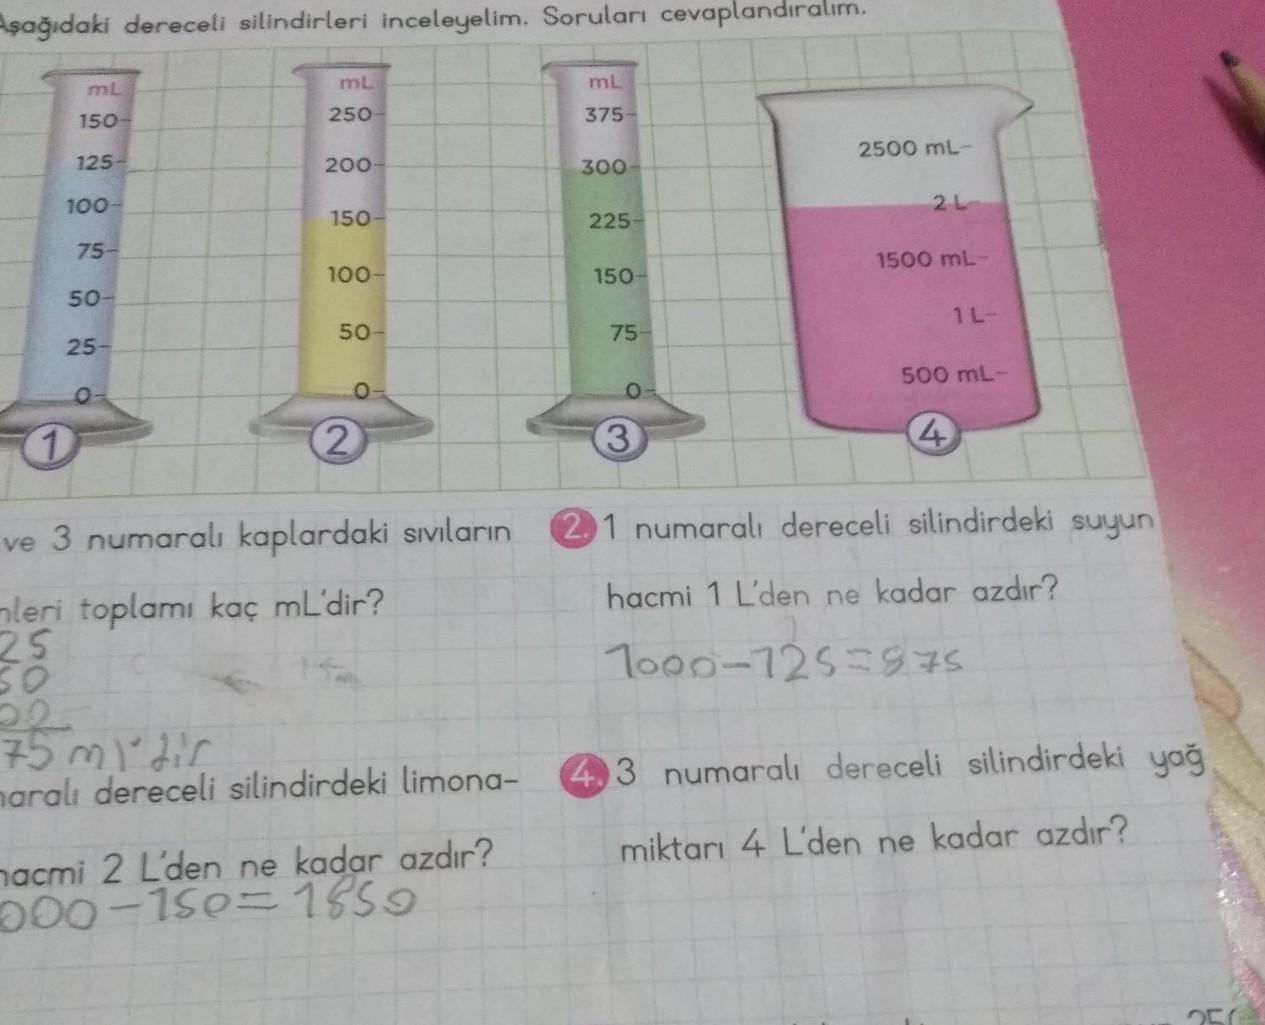 Aşağıdaki dereceli silindirleri inceleyelim. Soruları cevaplandıralım.
mL
150
125
100
75
50
25
0
1
mL
250
200
150
100
50
0
2
mL
375
300
225
150
75
0
3
2500 mL
2 L
1500 mL
1 L
500 mL
4
ve 3 numaralı kaplardaki sıvıların
toplamı kaç mL'dir?
25
50
00
75 ml'dir
2. 1 numaralı dereceli silindirdeki suyun
hacmi 1 L'den ne kadar azdır?
1000-125=875
dereceli silindirdeki limona-
hacmi 2 L'den ne kadar azdır?
000-150=1850
4. 3 numaralı dereceli silindirdeki yağ
miktarı 4 L'den ne kadar azdır?